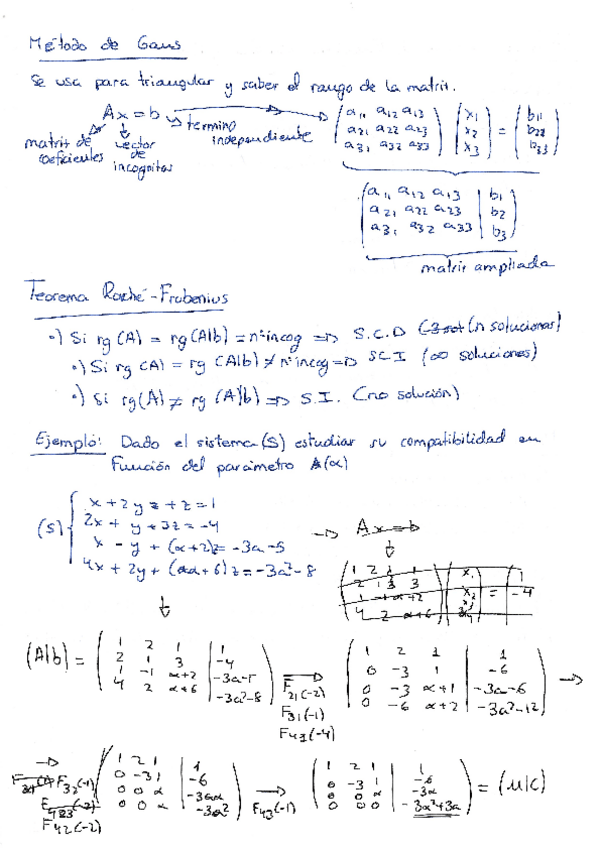 Método de Gauss
Se usa para triangular y saber el rango de la matriz.
Ax = b → termino independiente
matriz de coeficientes
vector de incognitas
( a11 a12 a13 ) ( x1 ) = ( b11 )
( a21 a22 a23 ) ( x2 ) = ( b22 )
( a31 a32 a33 ) ( x3 ) = ( b33 )
( a11 a12 a13 | b1 )
( a21 a22 a23 | b2 )
( a31 a32 a33 | b3 )
matriz ampliada
Teorema Roché-Frobenius
•) Si rg (A) = rg (A|b) = nº incog ⇒ S.C.D (n soluciones)
•) Si rg (A) = rg (A|b) ≠ nº incog ⇒ SCI (∞ soluciones)
•) Si rg(A) ≠ rg (A|b) ⇒ S.I. (no solución)
Ejemplo: Dado el sistema (S) estudiar su compatibilidad en
Función del parámetro (α)
(S) { x + 2y + z = 1
2x + y + 3z = -4
x - y + (α+2)z = -3a - 5
4x + 2y + (α+6)z = -3a²-8
→ Ax = b
( 1 2 1 1
2 1 3 3
1 -1 α+2
4 2 α+6 ) ( x1 x2 x3 ) = ( 1 -4
(A|b) =
( 1 2 1 | 1 )
( 2 1 3 | -4 )
( 1 -1 α+2 | -3a-5 )
( 4 2 α+6 | -3a²-8 )
F21(-2)
F31(-1)
F43(-4)
( 1 2 1 | 1 )
( 0 -3 1 | -6 )
( 0 -3 α+1 | -3a-6 )
( 0 -6 α+2 | -3a²-12 ) →
→ F32(-1)
F42(-2)
( 1 2 1 | 1 )
( 0 -3 1 | -6 )
( 0 0 α | -3α )
( 0 0 α | -3α² )
→ F43(-1)
( 1 2 1 | 1 )
( 0 -3 1 | -6 )
( 0 0 α | -3α )
( 0 0 0 | -3α²+3α ) = (M|C)